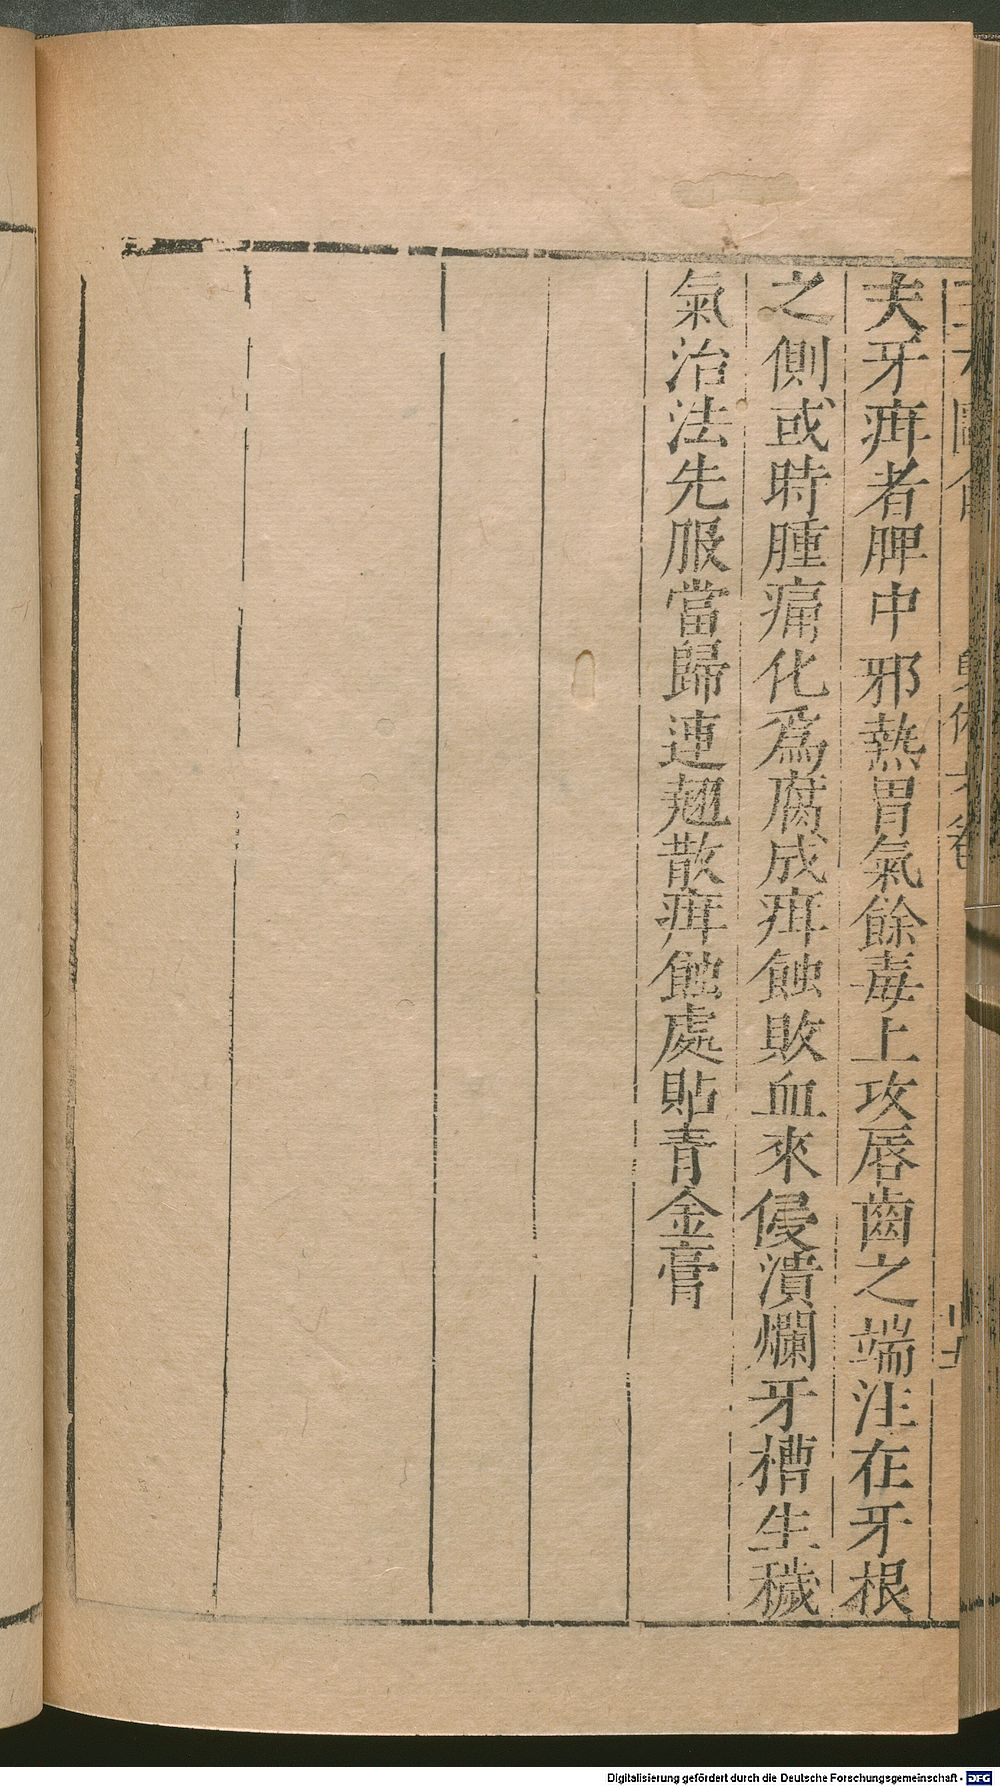 夫牙疳者脾中邪熱胃氣餘毒上攻唇齒之端注在牙根
之側或時腫痛化爲腐成疳蝕敗血來侵潰爛牙槽生穢
氣治法先服當歸連翹散疳蝕處貼青金膏
Digitalisierung gefördert durch die Deutsche Forschungsgemeinschaft - DFG